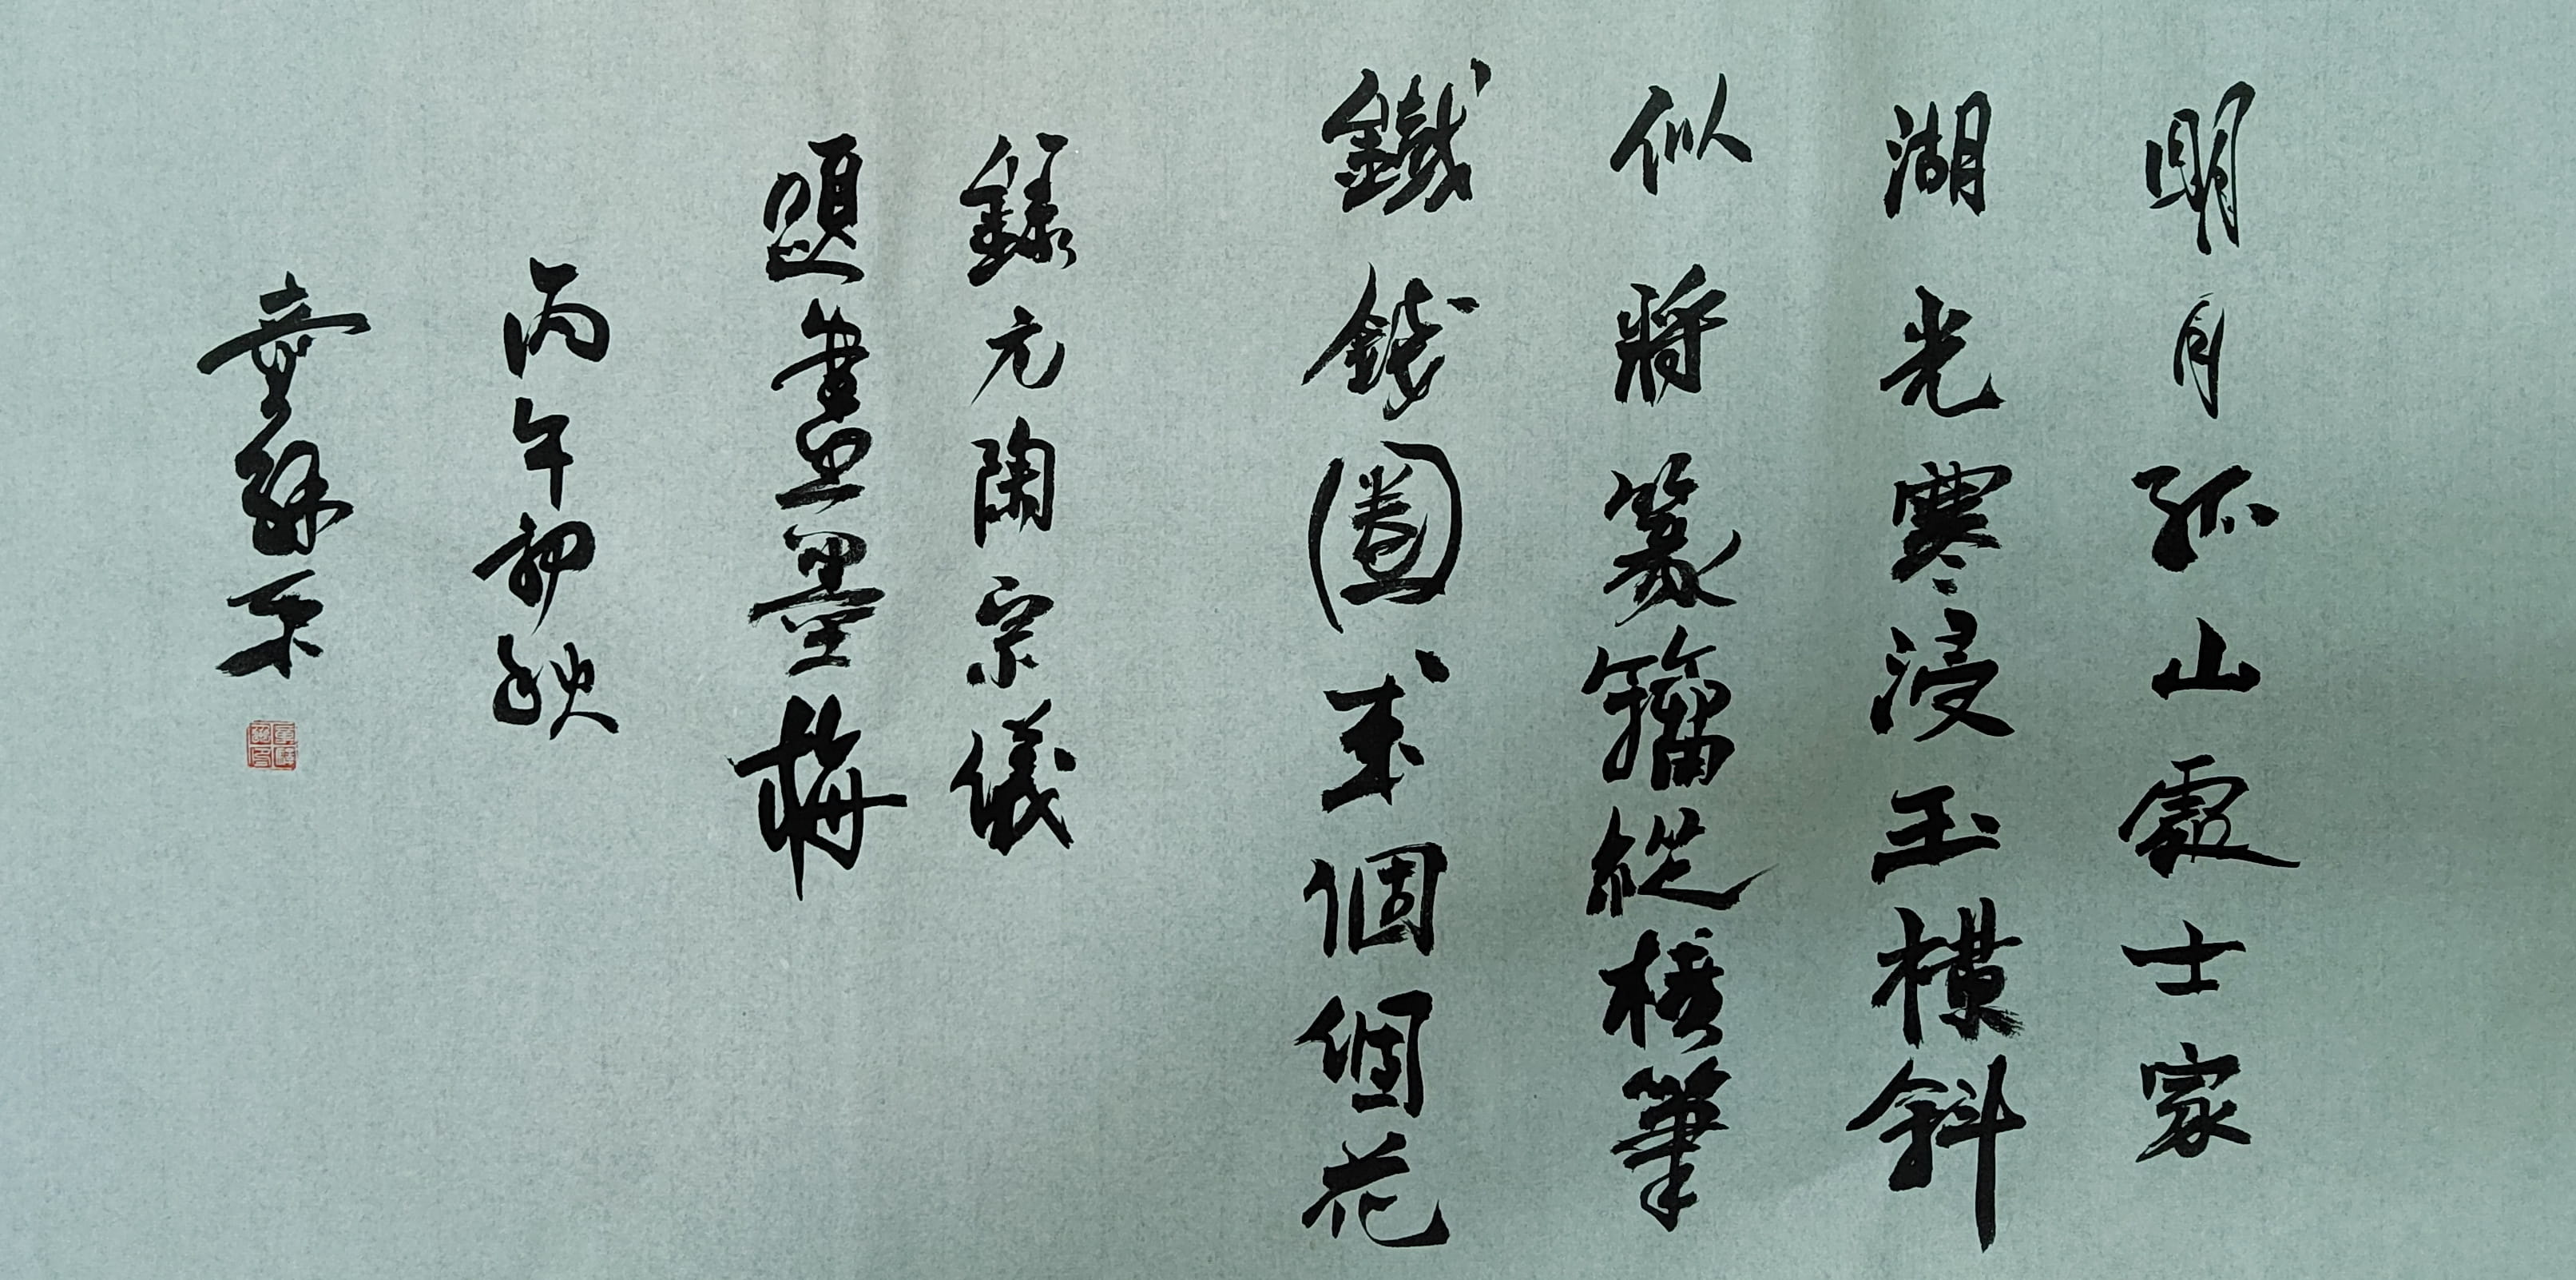 明月孤山處士家
湖光寒浸玉橫斜
似將篆籀縱橫筆
鐵錢圈成個個花
錄元陶宗儀
題畫墨梅
丙午初秋
童